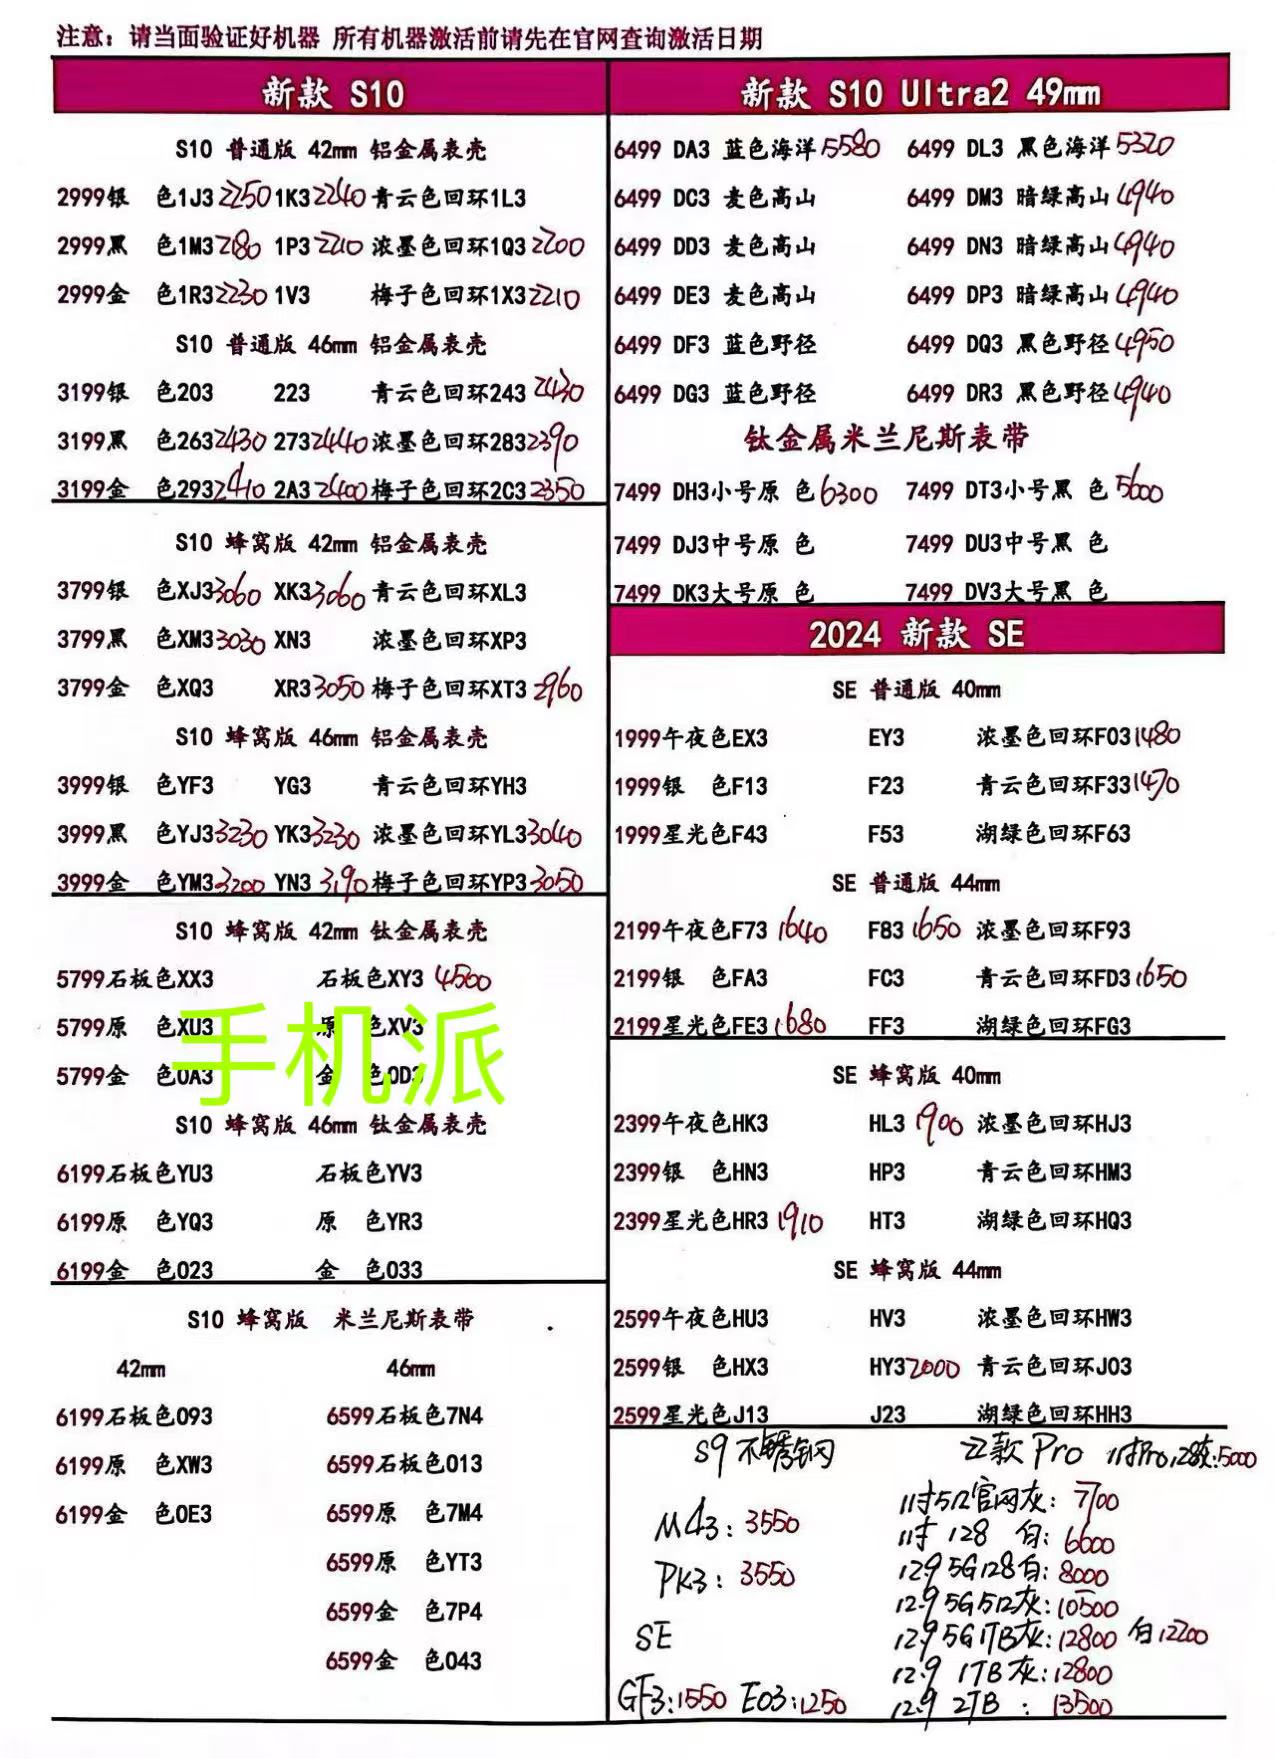 注意：请当面验证好机器 所有机器激活前请先在官网查询激活日期
新款 S10
S10 普通版 42mm 铝金属表壳
2999银 色1J3 2250 1K3 2240 青云色回环1L3
2999黑 色1M3 2180 1P3 2210 浓墨色回环1Q3 2200
2999金 色1R3 2230 1V3 梅子色回环1X3 2210
S10 普通版 46mm 铝金属表壳
3199银 色203 223 青云色回环243 2430
3199黑 色263 2430 273 2440 浓墨色回环283 2390
3199金 色293 2410 2A3 2400 梅子色回环2C3 2350
S10 蜂窝版 42mm 铝金属表壳
3799银 色XJ3 3060 XK3 3060 青云色回环XL3
3799黑 色XM3 3030 XN3 浓墨色回环XP3
3799金 色XQ3 XR3 3050 梅子色回环XT3 2960
S10 蜂窝版 46mm 铝金属表壳
3999银 色YF3 YG3 青云色回环YH3
3999黑 色YJ3 3230 YK3 3230 浓墨色回环YL3 3040
3999金 色YM3 3200 YN3 3190 梅子色回环YP3 3050
S10 蜂窝版 42mm 钛金属表壳
5799石板色XX3 石板色XY3 4500
5799原 色XU3 原 色XV3
5799金 色0A3 金 色0D3
手机派
S10 蜂窝版 46mm 钛金属表壳
6199石板色YU3 石板色YV3
6199原 色YQ3 原 色YR3
6199金 色023 金 色033
S10 蜂窝版 米兰尼斯表带
42mm 46mm
6199石板色093 6599石板色7N4
6199原 色XW3 6599石板色013
6199金 色0E3 6599原 色7M4
6599原 色YT3
6599金 色7P4
6599金 色043
新款 S10 Ultra2 49mm
6499 DA3 蓝色海洋 5580 6499 DL3 黑色海洋 5320
6499 DC3 麦色高山 6499 DM3 暗绿高山 4940
6499 DD3 麦色高山 6499 DN3 暗绿高山 4940
6499 DE3 麦色高山 6499 DP3 暗绿高山 4940
6499 DF3 蓝色野径 6499 DQ3 黑色野径 4950
6499 DG3 蓝色野径 6499 DR3 黑色野径 4940
钛金属米兰尼斯表带
7499 DH3小号原 色 6300 7499 DT3小号黑 色 5600
7499 DJ3中号原 色 7499 DU3中号黑 色
7499 DK3大号原 色 7499 DV3大号黑 色
2024 新款 SE
SE 普通版 40mm
1999午夜色EX3 EY3 浓墨色回环F03 1480
1999银 色F13 F23 青云色回环F33 1470
1999星光色F43 F53 湖绿色回环F63
SE 普通版 44mm
2199午夜色F73 1640 F83 1650 浓墨色回环F93
2199银 色FA3 FC3 青云色回环FD3 1650
2199星光色FE3 1680 FF3 湖绿色回环FG3
SE 蜂窝版 40mm
2399午夜色HK3 HL3 1900 浓墨色回环HJ3
2399银 色HN3 HP3 青云色回环HM3
2399星光色HR3 1910 HT3 湖绿色回环HQ3
SE 蜂窝版 44mm
2599午夜色HU3 HV3 浓墨色回环HW3
2599银 色HX3 HY3 2000 青云色回环J03
2599星光色J13 J23 湖绿色回环HH3
S9 不锈钢
M43：3550
PK3：3550
SE
GF3:1550 E03:1250
22款 Pro 11寸Pro128灰:5000
11寸512官网灰：7700
11寸 128 白：6600
12.9 5G128白：8000
12.9 5G512灰:10500
12.9 5G1TB灰:12800 白12200
12.9 1TB灰:12800
12.9 2TB：13500